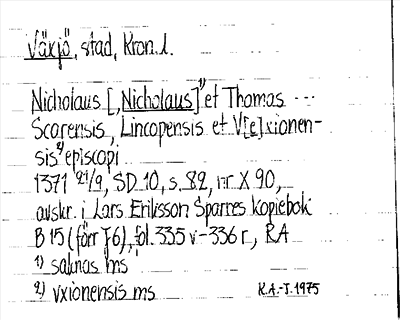 Växjö, stad, Kron. l.
Nicholaus [, Nicholaus]¹⁾ et Thomas ---
Scarensis, Lincopensis et V[e]xionen-
sis²⁾ episcopi
1371 21/9, SD 10, s. 82, nr X 90,
avskr. i Lars Eriksson Sparres kopiebok
B 15 (förr J 6), fol. 335 v - 336 r, RA
1) saknas ms
2) vxionensis ms K.A.-J. 1975